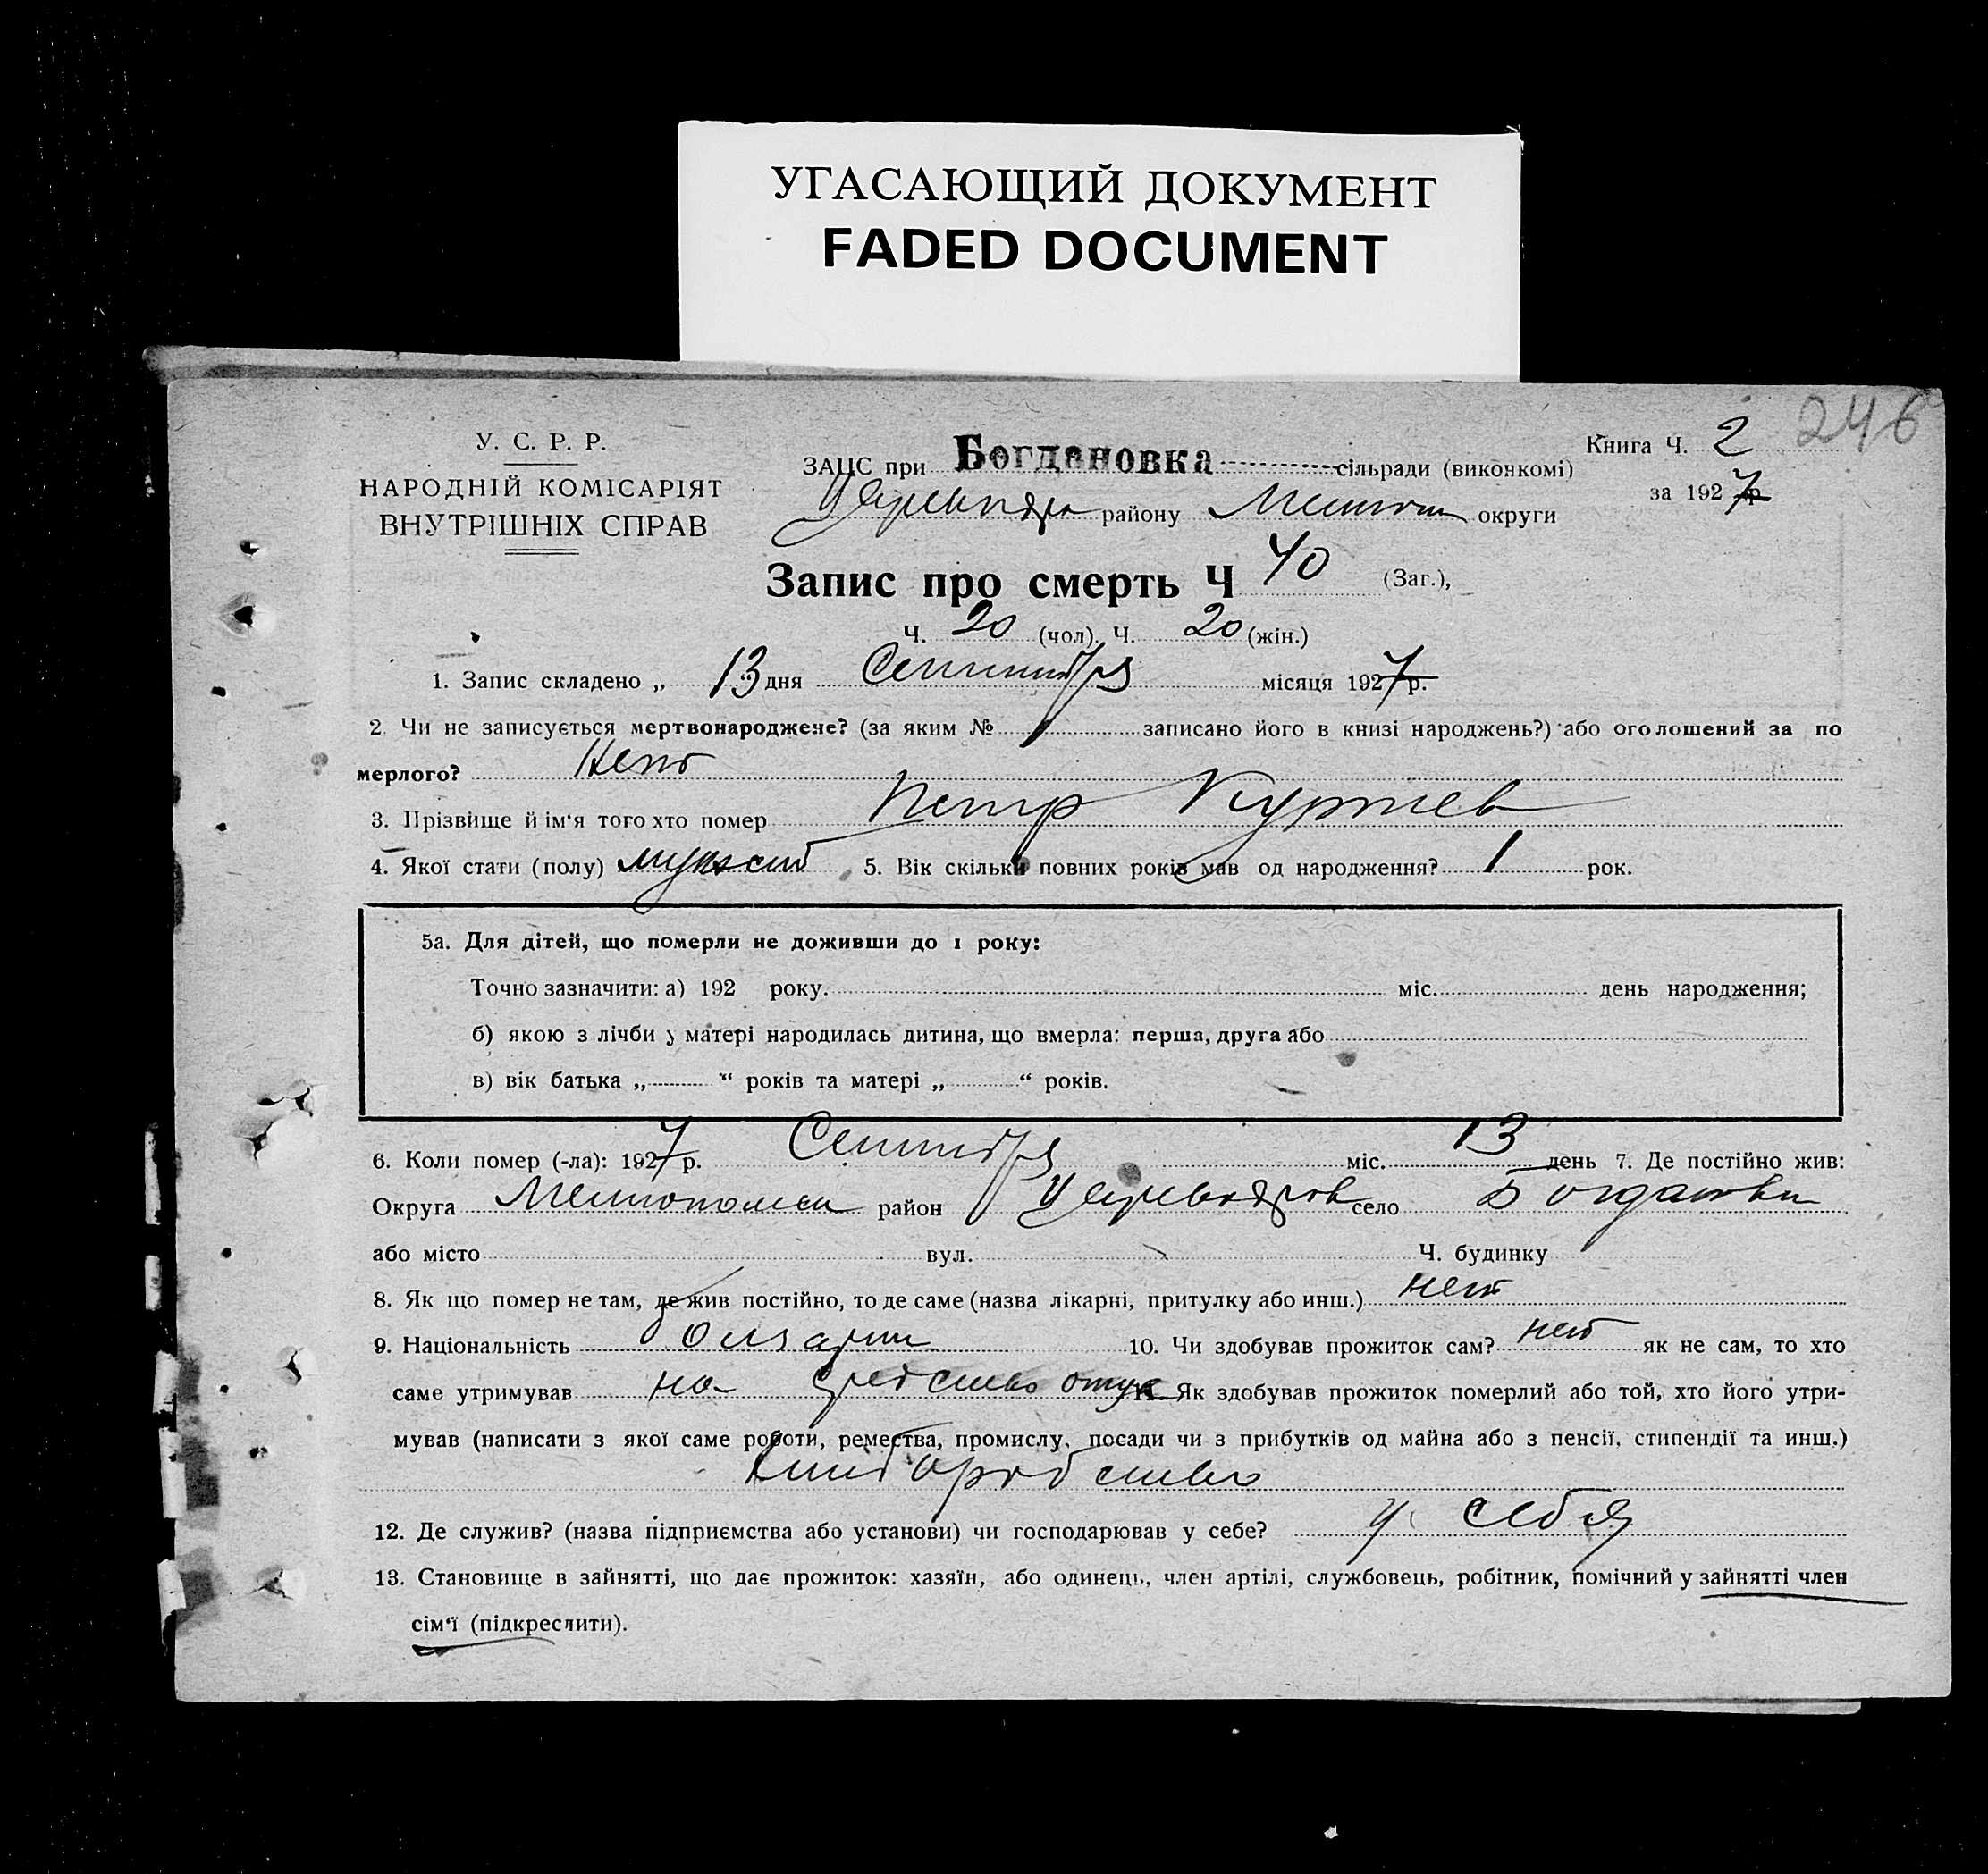 УГАСАЮЩИЙ ДОКУМЕНТ
FADED DOCUMENT
246
У. С. Р. Р.
НАРОДНІЙ КОМІСАРІЯТ
ВНУТРІШНІХ СПРАВ
Книга Ч. 2
за 1927 р.
ЗАЦС при Богдановка сільради (виконкомі)
району округи
Запис про смерть Ч 40 (Заг.),
Ч. 20 (чол). Ч. 20 (жін.)
1. Запис складено „ 13 дня Сентября місяця 1927 р.
2. Чи не записується мертвонароджене? (за яким № записано його в книзі народжень?) або оголошений за по
мерлого? Нет
3. Прізвище й ім'я того хто помер Петр Куртев
4. Якої стати (полу) мужской 5. Вік скільки повних років мав од народження? 1 рок.
5а. Для дітей, що померли не доживши до 1 року:
Точно зазначити: а) 192 року. міс. день народження;
б) якою з лічби у матері народилась дитина, що вмерла: перша, друга або
в) вік батька „ “ років та матері „ “ років.
6. Коли помер (-ла): 1927 р. Сентября міс. 13 день 7. Де постійно жив:
Округа район село Богдановки
або місто вул. Ч. будинку
8. Як що помер не там, де жив постійно, то де саме (назва лікарні, притулку або инш.) нет
9. Національність болгарин 10. Чи здобував прожиток сам? нет як не сам, то хто
саме утримував на средство отца 11. Як здобував прожиток померлий або той, хто його утри-
мував (написати з якої саме роботи, ремества, промислу, посади чи з прибутків од майна або з пенсії, стипендії та инш.)
12. Де служив? (назва підприємства або установи) чи господарював у себе? у себя
13. Становище в зайнятті, що дає прожиток: хазяїн, або одинець, член артілі, службовець, робітник, помічний у зайнятті член
сім'ї (підкреслити).